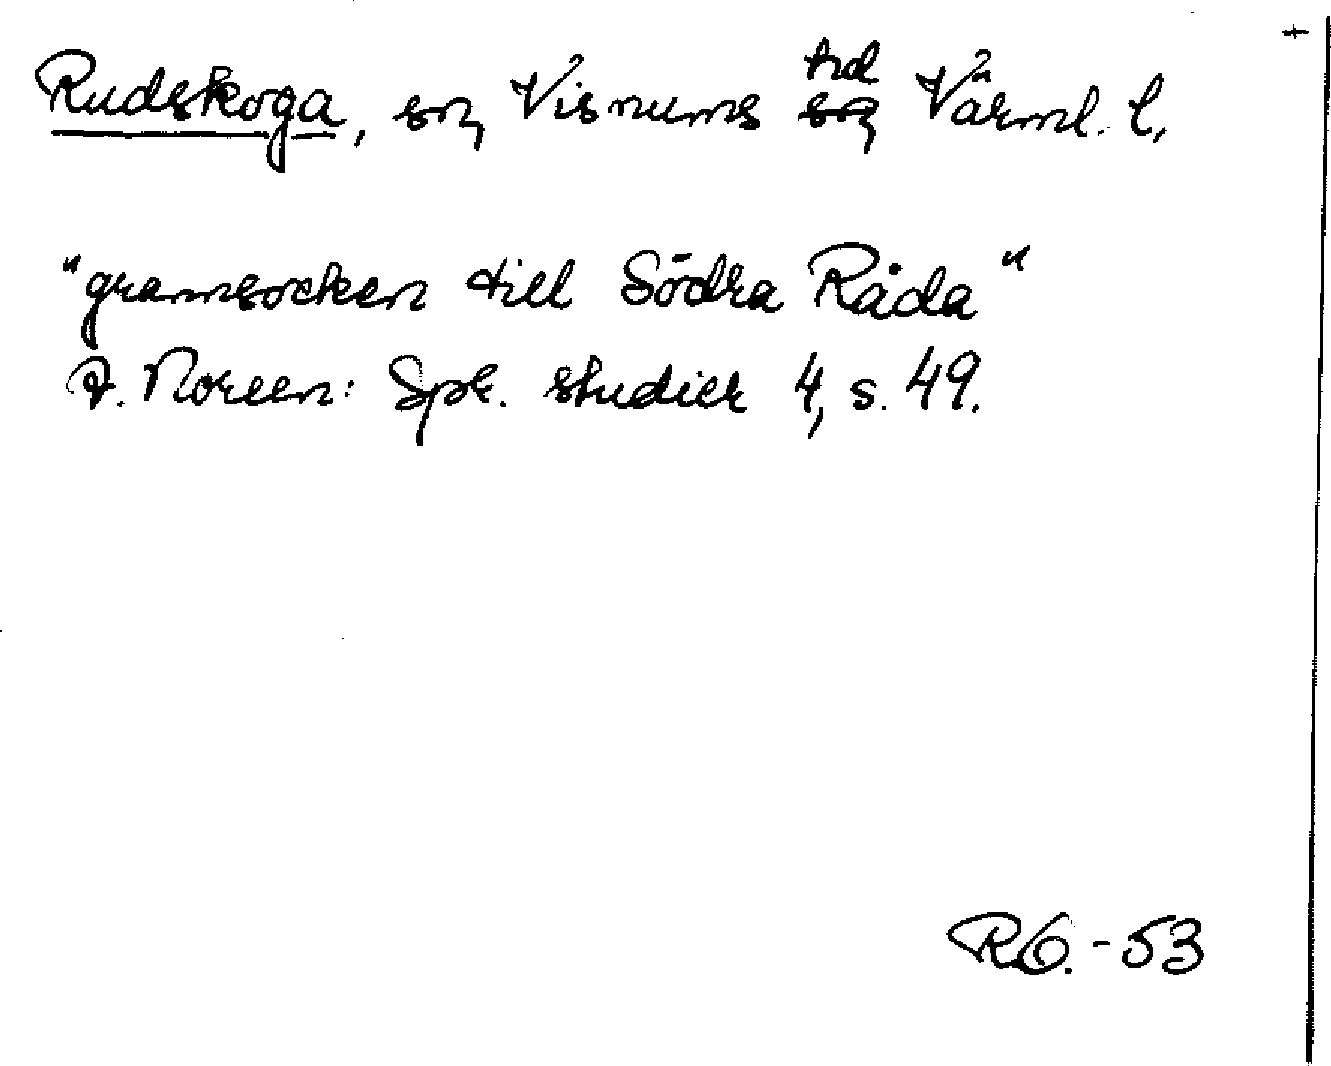 Rudskoga, sn, Visnums hd Värml. l.
"grannsocken till Södra Råda"
A. Noreen: Spr. studier 4, s. 49.
RG.-53